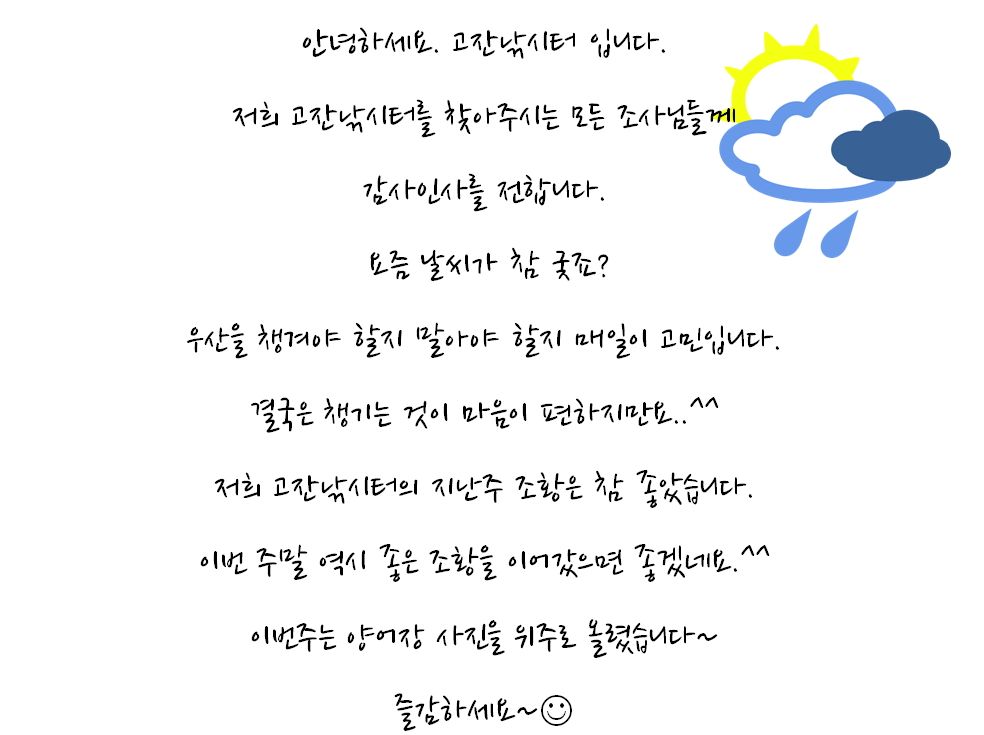 안녕하세요. 고잔낚시터 입니다.
저희 고잔낚시터를 찾아주시는 모든 조사님들께
감사인사를 전합니다.
요즘 날씨가 참 궂죠?
우산을 챙겨야 할지 말아야 할지 매일이 고민입니다.
결국은 챙기는 것이 마음이 편하지만요..^^
저희 고잔낚시터의 지난주 조황은 참 좋았습니다.
이번 주말 역시 좋은 조황을 이어갔으면 좋겠네요.^^
이번주는 양어장 사진을 위주로 올렸습니다~
즐감하세요~☺